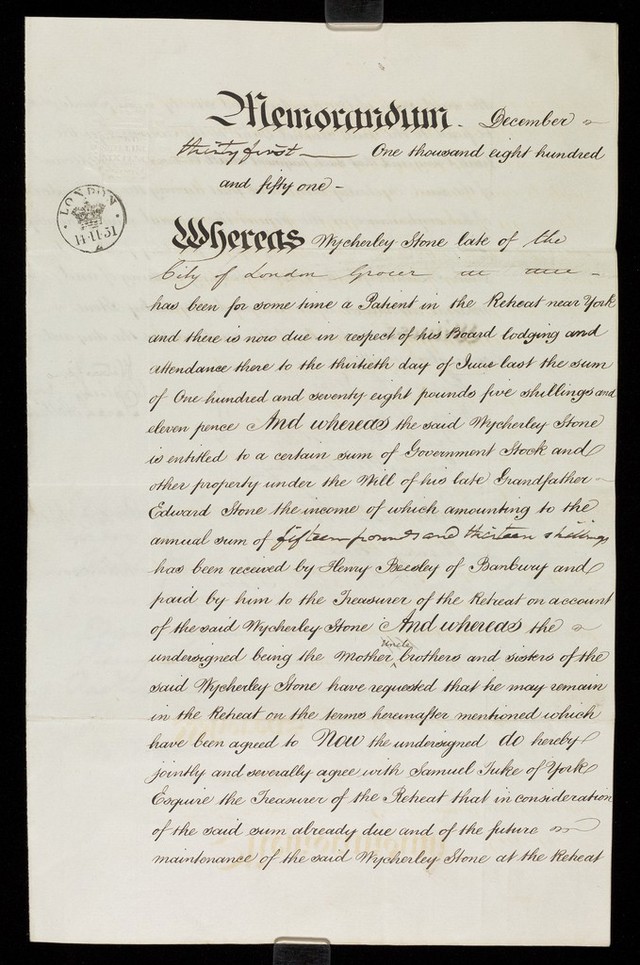 Memorandum. December
thirty first — One thousand eight hundred
and fifty one –
LONDON
11·11·51
Whereas Wycherley Stone late of the
City of London Grocer
has been for some time a Patient in the Retreat near York
and there is now due in respect of his Board lodging and
attendance there to the thirtieth day of June last the sum
of One hundred and seventy eight pounds five shillings and
eleven pence And whereas the said Wycherley Stone
is entitled to a certain sum of Government Stock and
other property under the Will of his late Grandfather
Edward Stone the income of which amounting to the
annual sum of fifteen pounds and thirteen shillings
has been received by Henry Beesley of Banbury and
paid by him to the Treasurer of the Retreat on account
of the said Wycherley Stone And whereas the
uncle
undersigned being the Mother brothers and sisters of the
said Wycherley Stone have requested that he may remain
in the Retreat on the terms hereinafter mentioned which
have been agreed to Now the undersigned do hereby
jointly and severally agree with Samuel Tuke of York
Esquire the Treasurer of the Retreat that in consideration
of the said sum already due and of the future
maintenance of the said Wycherley Stone at the Retreat